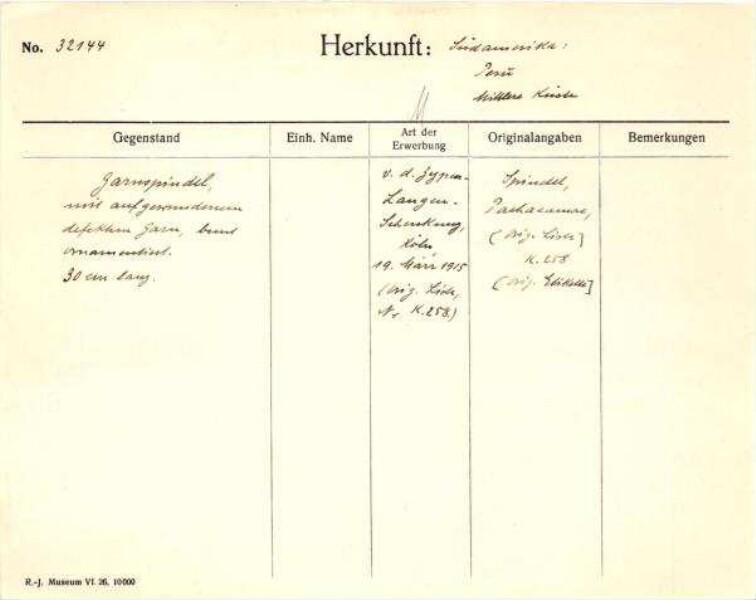 No. 32144
Herkunft: Südamerika:
Perú
Mittlere Küste
Gegenstand
Einh. Name
Art der
Erwerbung
Originalangaben
Bemerkungen
Garnspindel,
mit aufgewundenem
defektem Garn, bunt
ornamentiert.
30 cm lang.
v. d. Zypen-
Langen-
Schenkung,
Köln
19. März 1915
(Orig. Liste,
Nr K.258.)
Spindel,
Pachacamac,
(Orig. Liste]
K. 258
(Orig. Etikette]
R.-J. Museum VI. 26. 10000